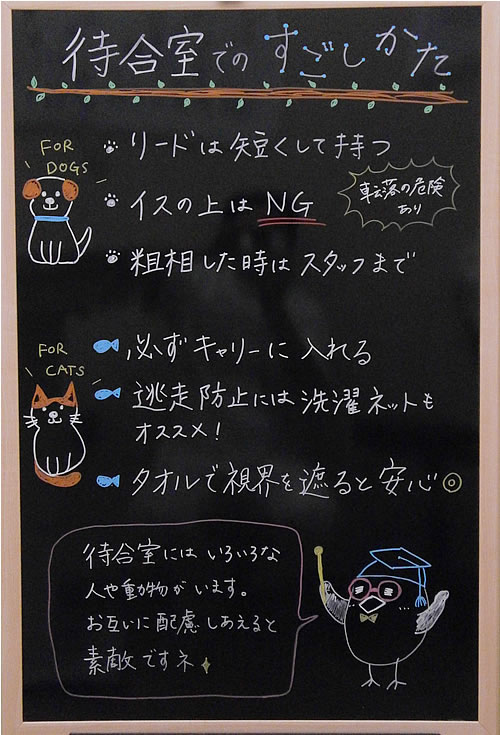 待合室でのすごしかた
FOR
DOGS
リードは短くして持つ
イスの上はNG
転落の危険
あり
粗相した時はスタッフまで
FOR
CATS
必ずキャリーに入れる
逃走防止には洗濯ネットも
オススメ!
タオルで視界を遮ると安心◎
待合室にはいろいろな
人や動物がいます。
お互いに配慮しあえると
素敵ですネ